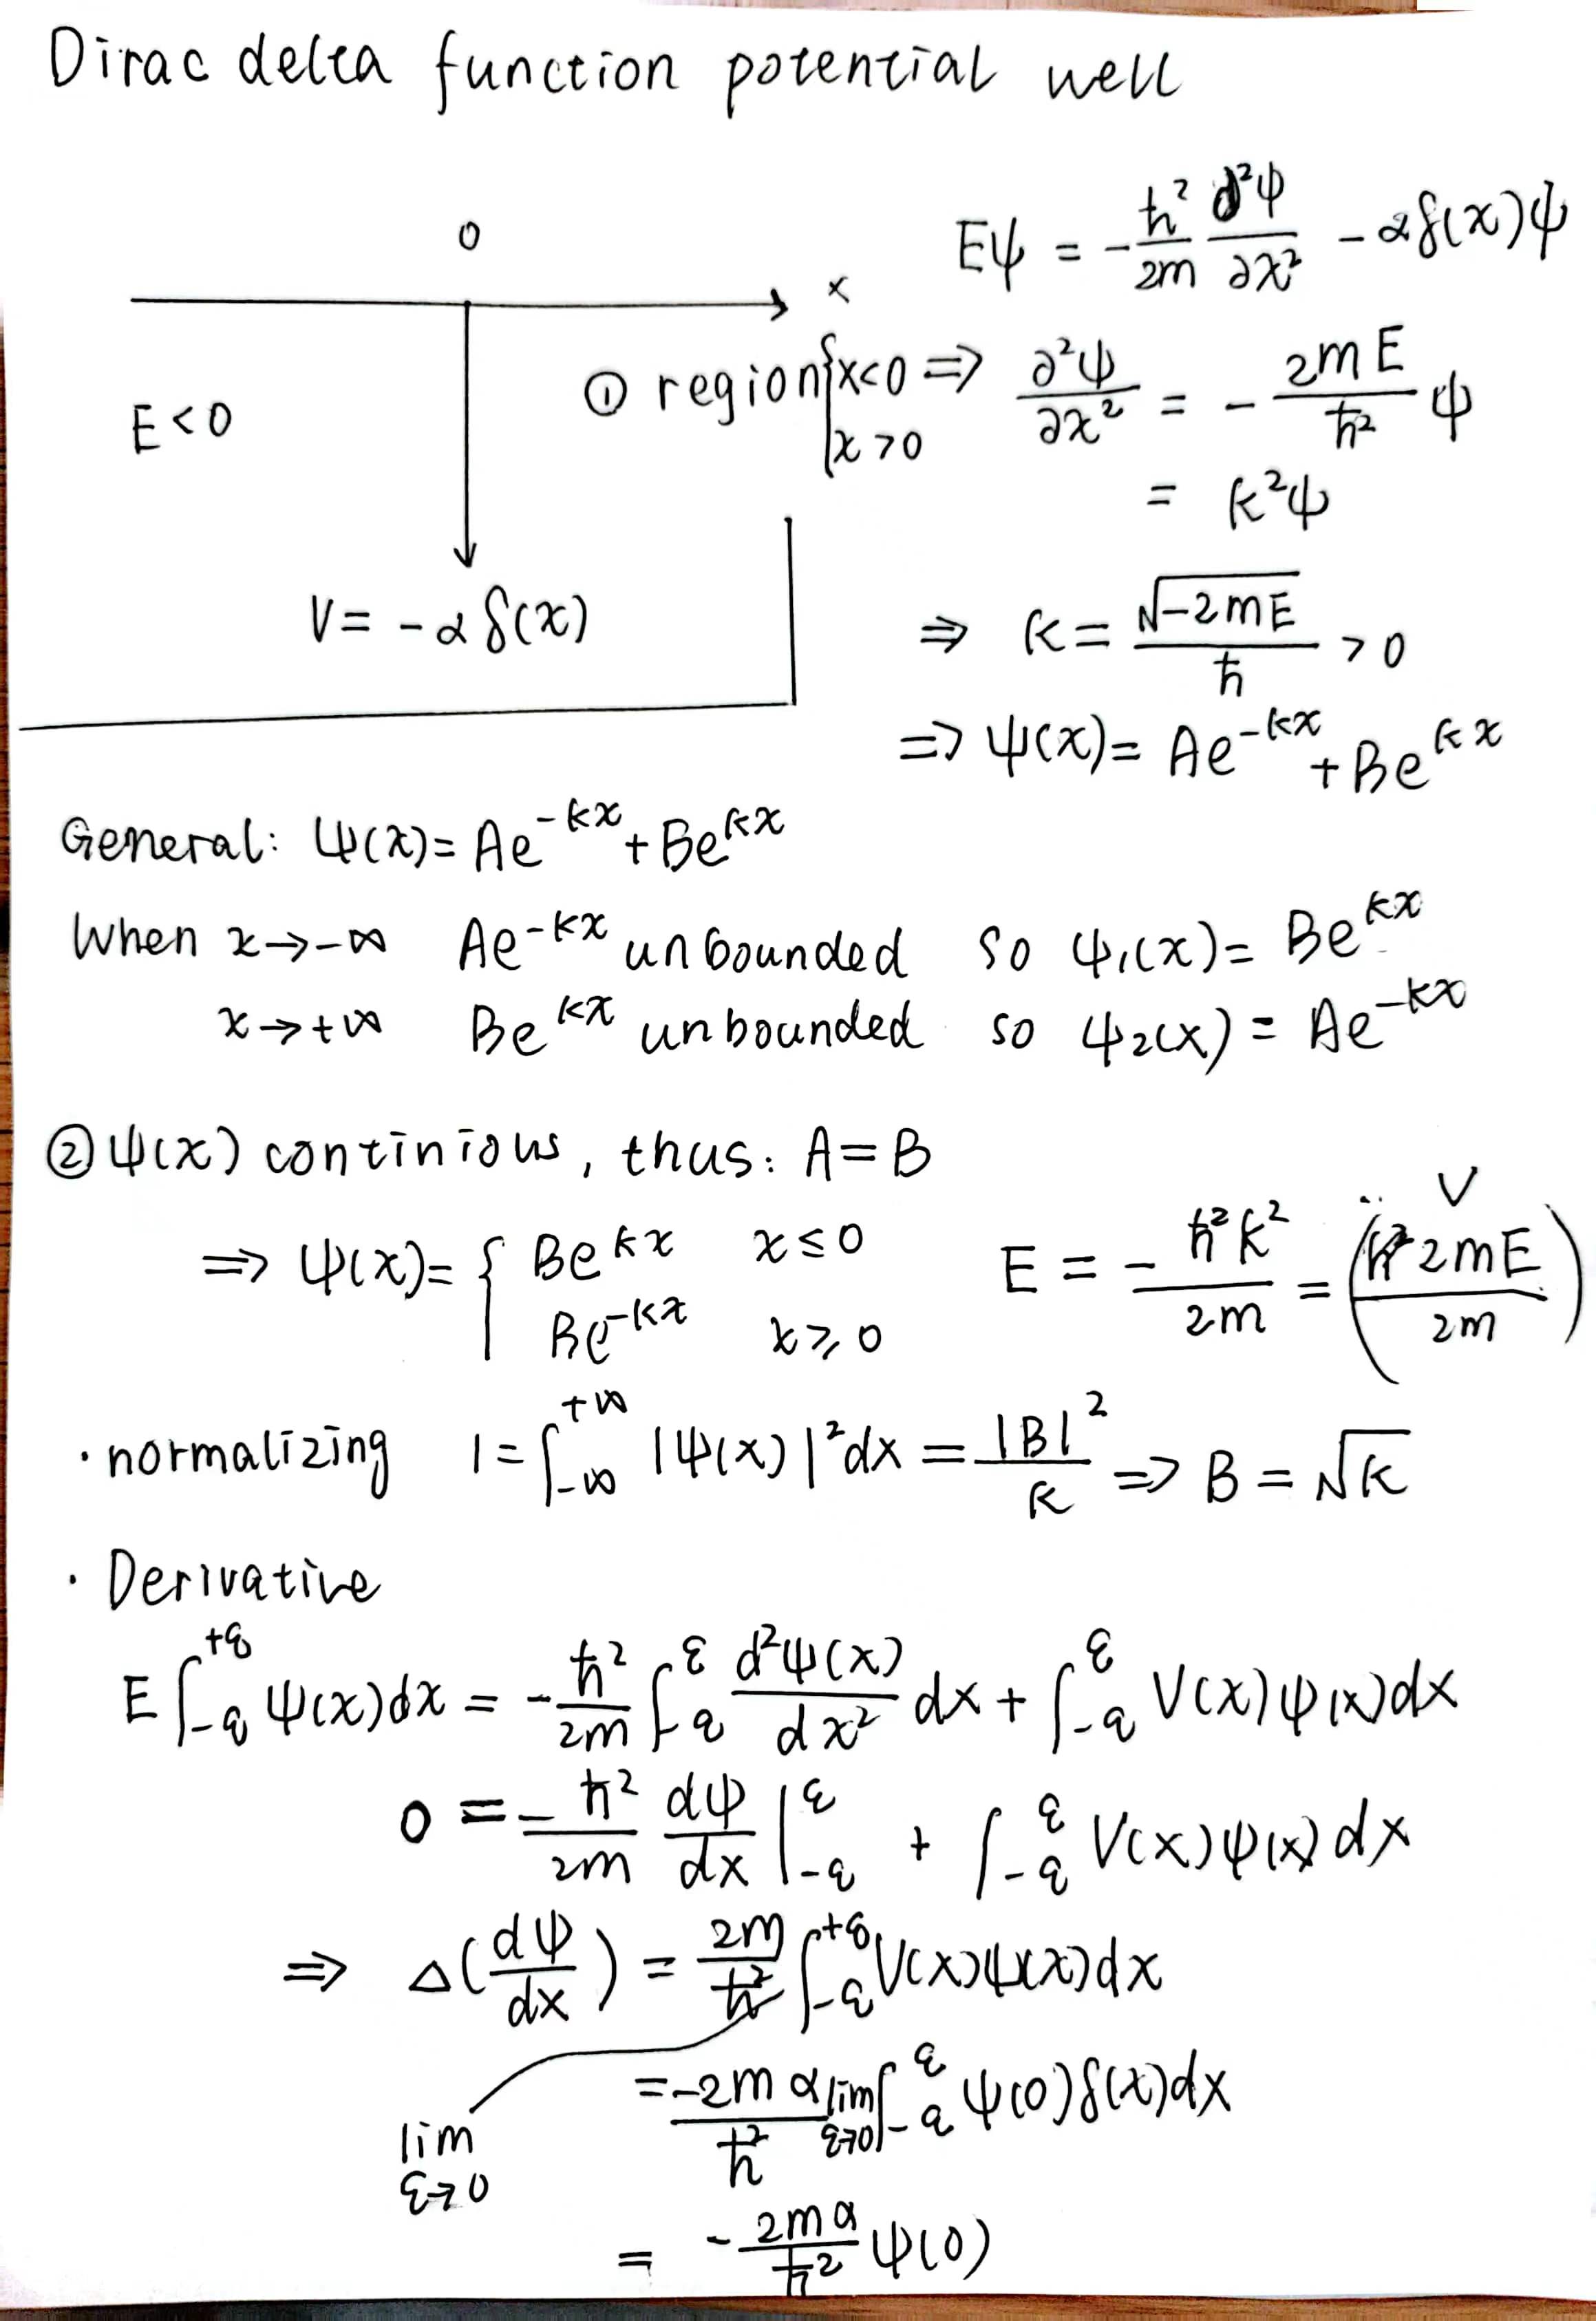 Dirac delta function potential well
0
x
E<0
V= -αδ(x)
Eψ = -ħ²/2m ∂²ψ/∂x² - αδ(x)ψ
① region{x<0 x>0 ⇒ ∂²ψ/∂x² = - 2mE/ħ² ψ
= k²ψ
⇒ k = √-2mE/ħ > 0
⇒ ψ(x)= Ae^-kx + Be^kx
General: ψ(x)= Ae^-kx + Be^kx
When x→-∞ Ae^-kx unbounded so ψ₁(x)= Be^kx
x→+∞ Be^kx unbounded so ψ₂(x) = Ae^-kx
② ψ(x) continious, thus: A=B
⇒ ψ(x)= { Be^kx x≤0
Be^-kx x≥0
E = - ħ²k²/2m = (ħ² 2mE/2m)
· normalizing 1=∫_-∞^+∞ |ψ(x)|²dx = |B|²/k ⇒ B = √k
· Derivative
E∫_-ε^+ε ψ(x)dx = -ħ²/2m ∫_-ε^ε d²ψ(x)/dx² dx + ∫_-ε^ε V(x)ψ(x)dx
0 = -ħ²/2m dψ/dx |_-ε^ε + ∫_-ε^ε V(x)ψ(x)dx
⇒ Δ(dψ/dx) = 2m/ħ² ∫_-ε^+ε V(x)ψ(x)dx
lim ε→0
= -2mα/ħ² lim ε→0 ∫_-ε^ε ψ(0)δ(x)dx
= - 2mα/ħ² ψ(0)